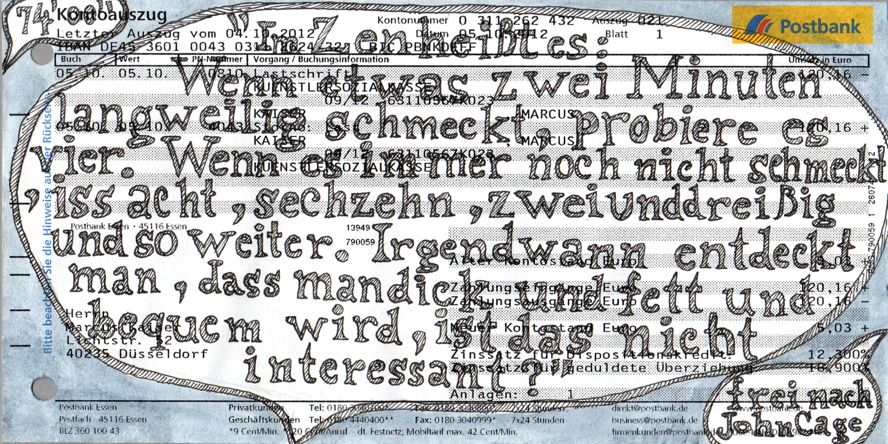 74.000
Kontoauszug
Kontonummer 0 311 262 432 Auszug 021
Letzter Auszug vom 04.10.2012
Blatt 1
Postbank
Buch Wert PN-Nummer Vorgang / Buchungsinformation
05.10. 05.10. Lastschrift 120,16 -
KUENSTLERSOZIALKASSE
KAISER MARCUS
120,16 +
KAISER MARCUS
KUENSTLERSOZIALKASSE
"In Zen heißt es:
Wenn etwas zwei Minuten
langweilig schmeckt, probiere es
vier. Wenn es immer noch nicht schmeckt
, iss acht, sechzehn, zweiunddreißig
und so weiter. Irgendwann entdeckt
man, dass man dich rund fett und
bequem wird, ist das nicht
interessant?"
frei nach
John Cage
Postbank Essen · 45116 Essen
13949
790059
Alter Kontostand Euro
Zahlungseingänge Euro 120,16 +
Zahlungsausgänge Euro 120,16 -
Neuer Kontostand Euro 5,03 +
Zinssatz für Dispositionskredit 12,300%
Zinssatz für geduldete Überziehung
Anlagen: 1
Herrn
Marcus Kaiser
Lichtstr. 52
40235 Düsseldorf
Bitte beachten Sie die Hinweise auf der Rückseite
Postbank Essen
Postfach · 45116 Essen
BLZ 360 100 43
Privatkunden
Geschäftskunden Tel: 0180 4440400** Fax: 0180 3040999* 7x24 Stunden
*9 Cent/Min. Cent/Anruf dt. Festnetz; Mobiltarif max. 42 Cent/Min.
direkt@postbank.de
business@postbank.de
firmenkunden@postbank.de